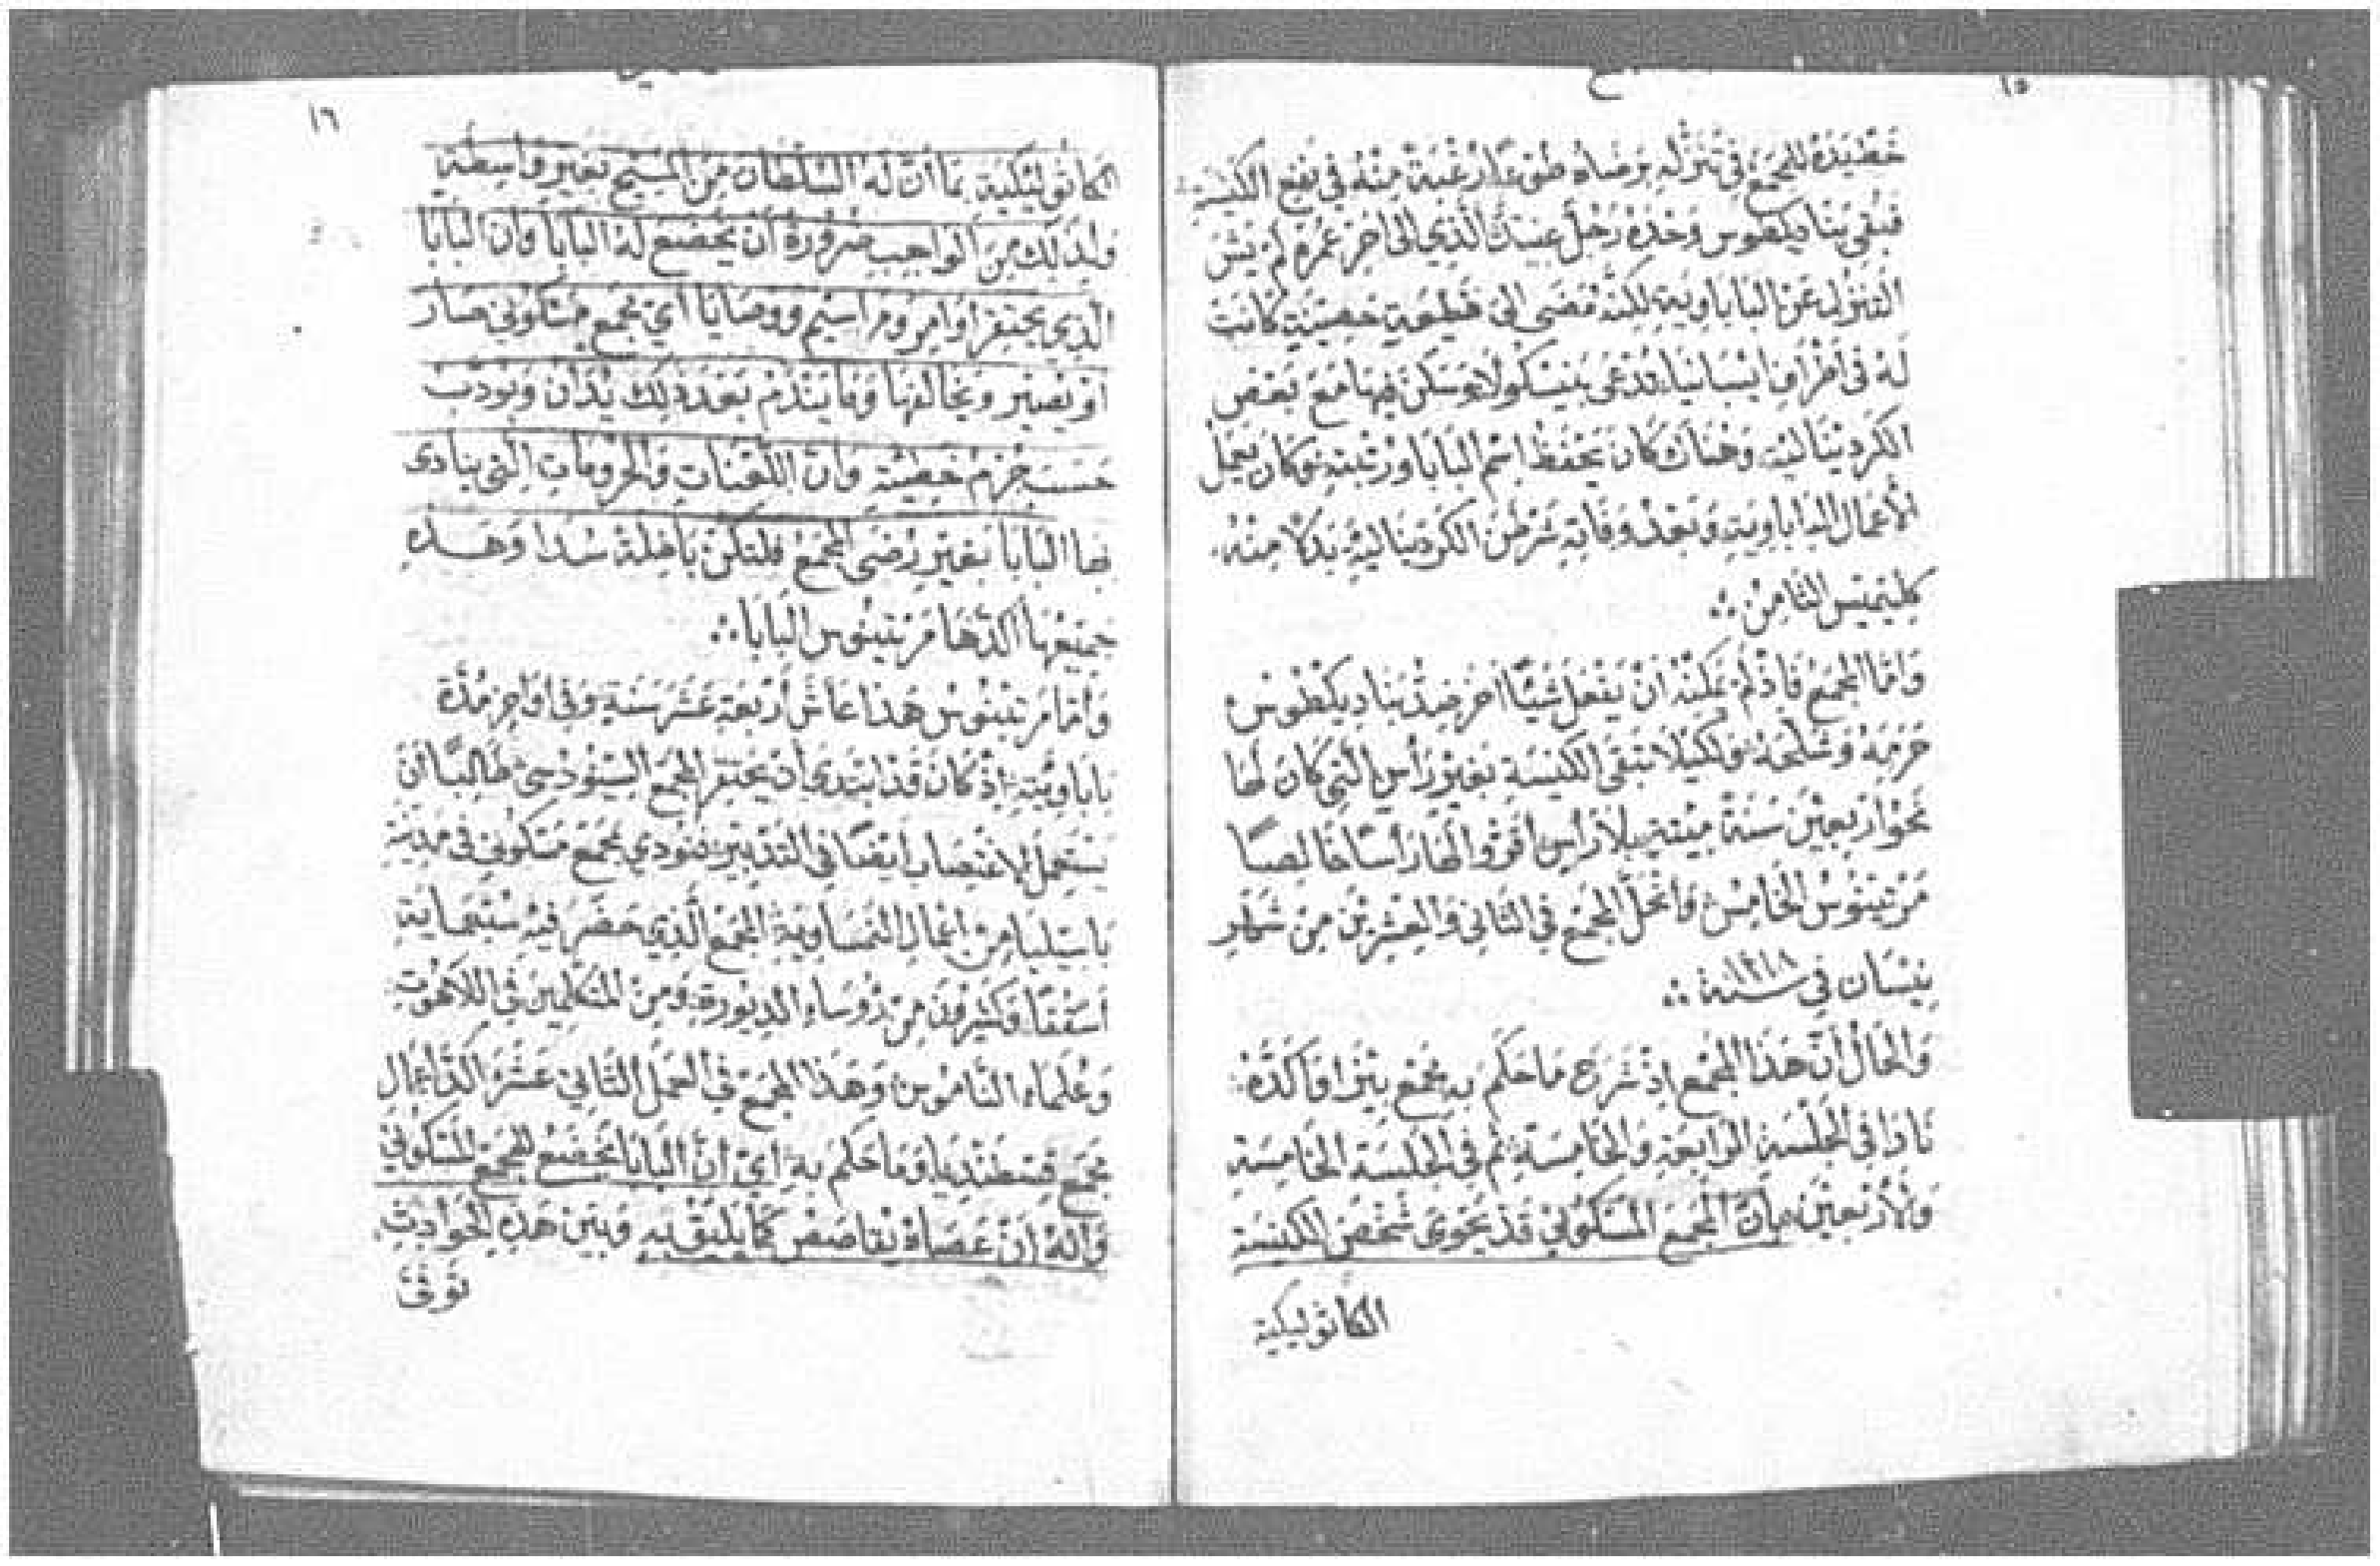 ١٥
خضيده للمجمع في تنزله برضاه طوعًا رغبةً منه في نفع الكنيسة
فبقي بناديكطوس وحده رجل عنيد الذي الى اخر عمره لم يشَ
التنزل عن الباباوية لكنه مضى الى قطعة حصينة كانت
له في اطراف ايسبانيا تدعى بنيسكولا وسكن فيها مع بعض
الكردينالية وهناك كان يحفظ اسم البابا ورتبته وكان يعمل
الأعمال الباباوية وبعد وفاته شرطن الكردينالية بدلًا منه
كليميس الثامن
وَامّا المجمع فاذ لم يمكنه أن يفعل شيئًا اخر ضد بناديكطوس
حرمه وشلحه ولكيلا تبقى الكنيسة بغير رأس التي كان لها
نحو اربعين سنة ميتة بلا رأس افرزوا لها رأسًا خالصًا
مرتينوس الخامس وانحل المجمع في الثاني والعشرين من شهر
نيسان في سنة ١٤١٨
والحال أنّ هذا المجمع إذ شرع ما حكم به مجمع بيزا واكّده
نادا في الجلسة الرابعة والخامسة ثم في الجلسة الخامسة
والأربعين بأن المجمع المسكوني قد يحوى شخص الكنيسة
الكاثوليكية
١٦
الكاثوليكية بما أن له السلطان من المسيح بغير واسطة
ولذلك من الواجب ضرورة أن يخضع له البابا وان البابا
الذي يحتقر اوامر ومراسيم ووصايا اي مجمع مسكوني صار
او يصير ويخالفها وما يندم بعد ذلك يُدان ويودب
حسب جرم خطيته وانّ اللعنات والحرومات التي ينادى
بها البابا بغير رضى المجمع فلتكن باطلة سدا وهذه
جميعها اكّدها مرتينوس البابا
وَامّا مرتينوس هذا عاش أربعة عشر سنة وفي أواخر مدة
باباويته إذ كان قد ابتدى أن يحتقر المجمع السينودسي طالبًا ان
يستعمل الاغتصاب أيضًا في التدبير فنودي بمجمع مسكوني في مدينة
باسيليا من اعمال النمساوية المجمع الذي حضر فيه سبعماية
اسقفًا وكثيرون من رؤساء الديورة ومن المتكلمين في اللاهوت
وعلماء الناموس وهذا المجمع في العمل الثاني عشر اكّد اعمال
مجمع قسطنديا وما حكم به اي أن البابا يخضع للمجمع المسكوني
وانهُ إن عصاهُ يقاصص كما يليق به وبين هذه الحوادث
توفى